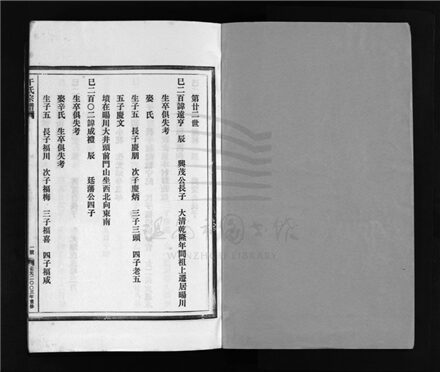 第廿二世
巳二百諱遠亨 辰 興茂公長子 大清乾隆年間祖上遷居暘川
生卒俱失考
娶 氏
生子五 長子慶朋 次子慶炳 三子三頭 四子老五
五子慶文
墳在暘川大井頭前門山坐西北向東南
巳二百〇二諱咸禮 辰 廷藩公四子
生卒俱失考
娶辛氏 生卒俱失考
生子五 長子福川 次子福梅 三子福喜 四子福咸
于氏宗譜
一號
公元二〇〇三年重修
LIBRARY